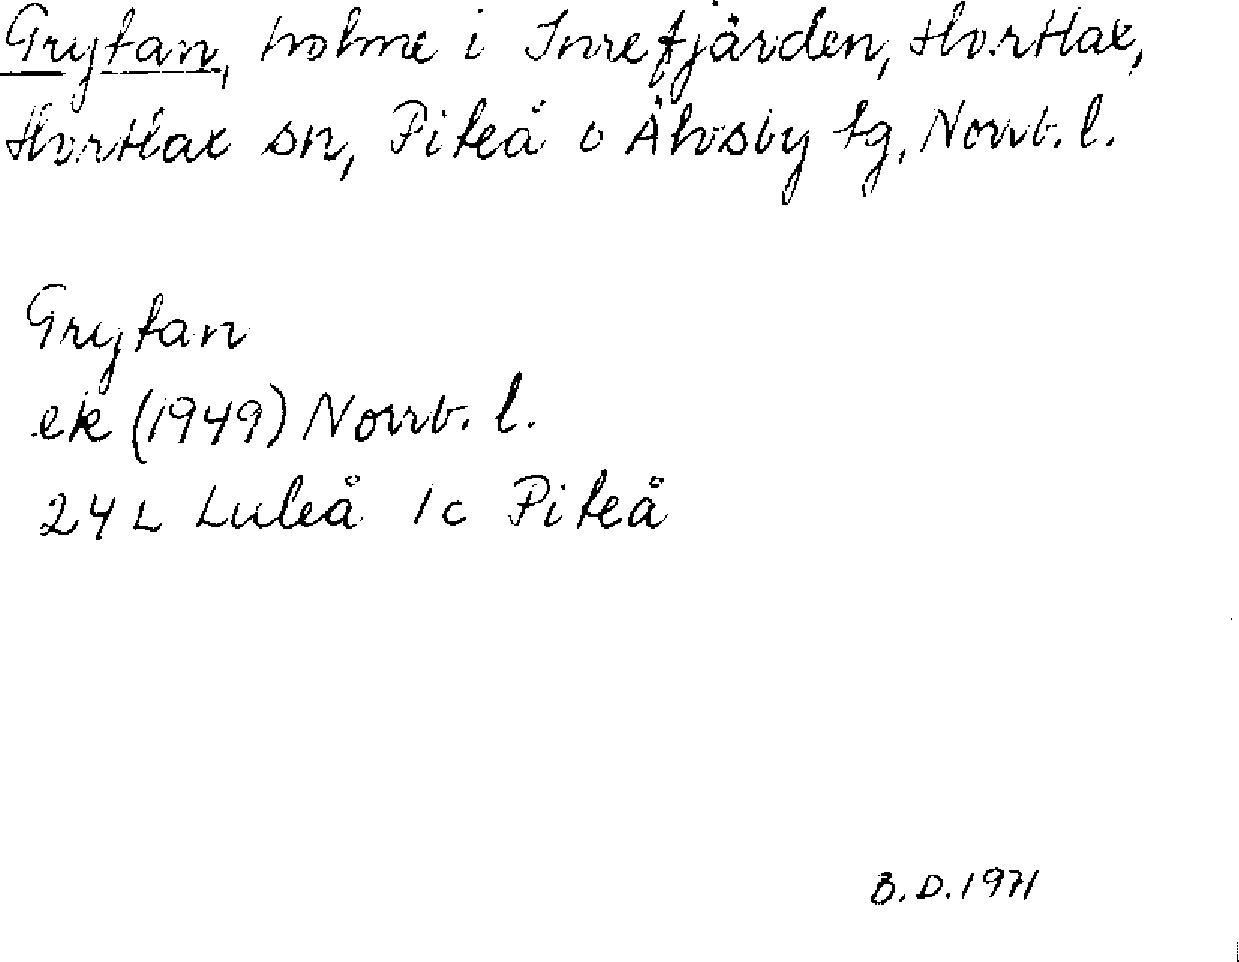 Grytan, holme i Inrefjärden, Hortlax,
Hortlax sn, Piteå o Älvsby tg, Norrb. l.
Grytan
ek (1949) Norrb. l.
24 L Luleå 1c Piteå
B.D.1971